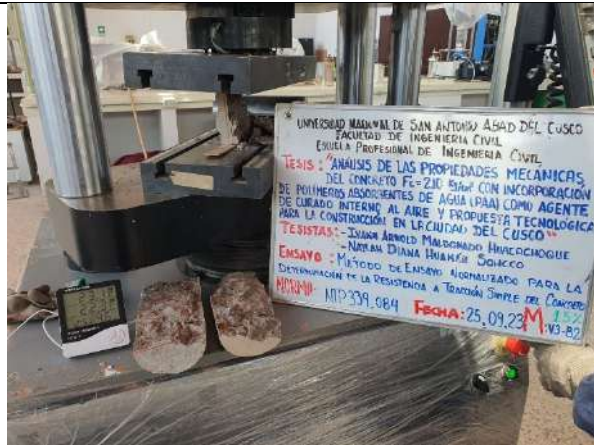 UNIVERSIDAD NACIONAL DE SAN ANTONIO ABAD DEL CUSCO
FACULTAD DE INGENIERIA CIVIL
ESCUELA PROFESIONAL DE INGENIERIA CIVIL
TESIS: "ANÁLISIS DE LAS PROPIEDADES MECÁNICAS
DEL CONCRETO F'c=210 kg/cm² CON INCORPORACIÓN
DE POLIMEROS ABSORBENTES DE AGUA (PAA) COMO AGENTE
DE CURADO INTERNO AL AIRE Y PROPUESTA TECNOLÓGICA
PARA LA CONSTRUCCIÓN EN LA CIUDAD DEL CUSCO"
TESISTAS: - IVANN ARNOLD MALDONADO HUALLACHOQUE
- NAYLAH DIANA HUAMÁN
ENSAYO: MÉTODO DE ENSAYO NORMALIZADO PARA LA
DETERMINACIÓN DE LA RESISTENCIA A TRACCIÓN SIMPLE DEL CONCRETO
NORMA: NTP339.084 FECHA: 25.09.23 M: 1.5%
V3-B2